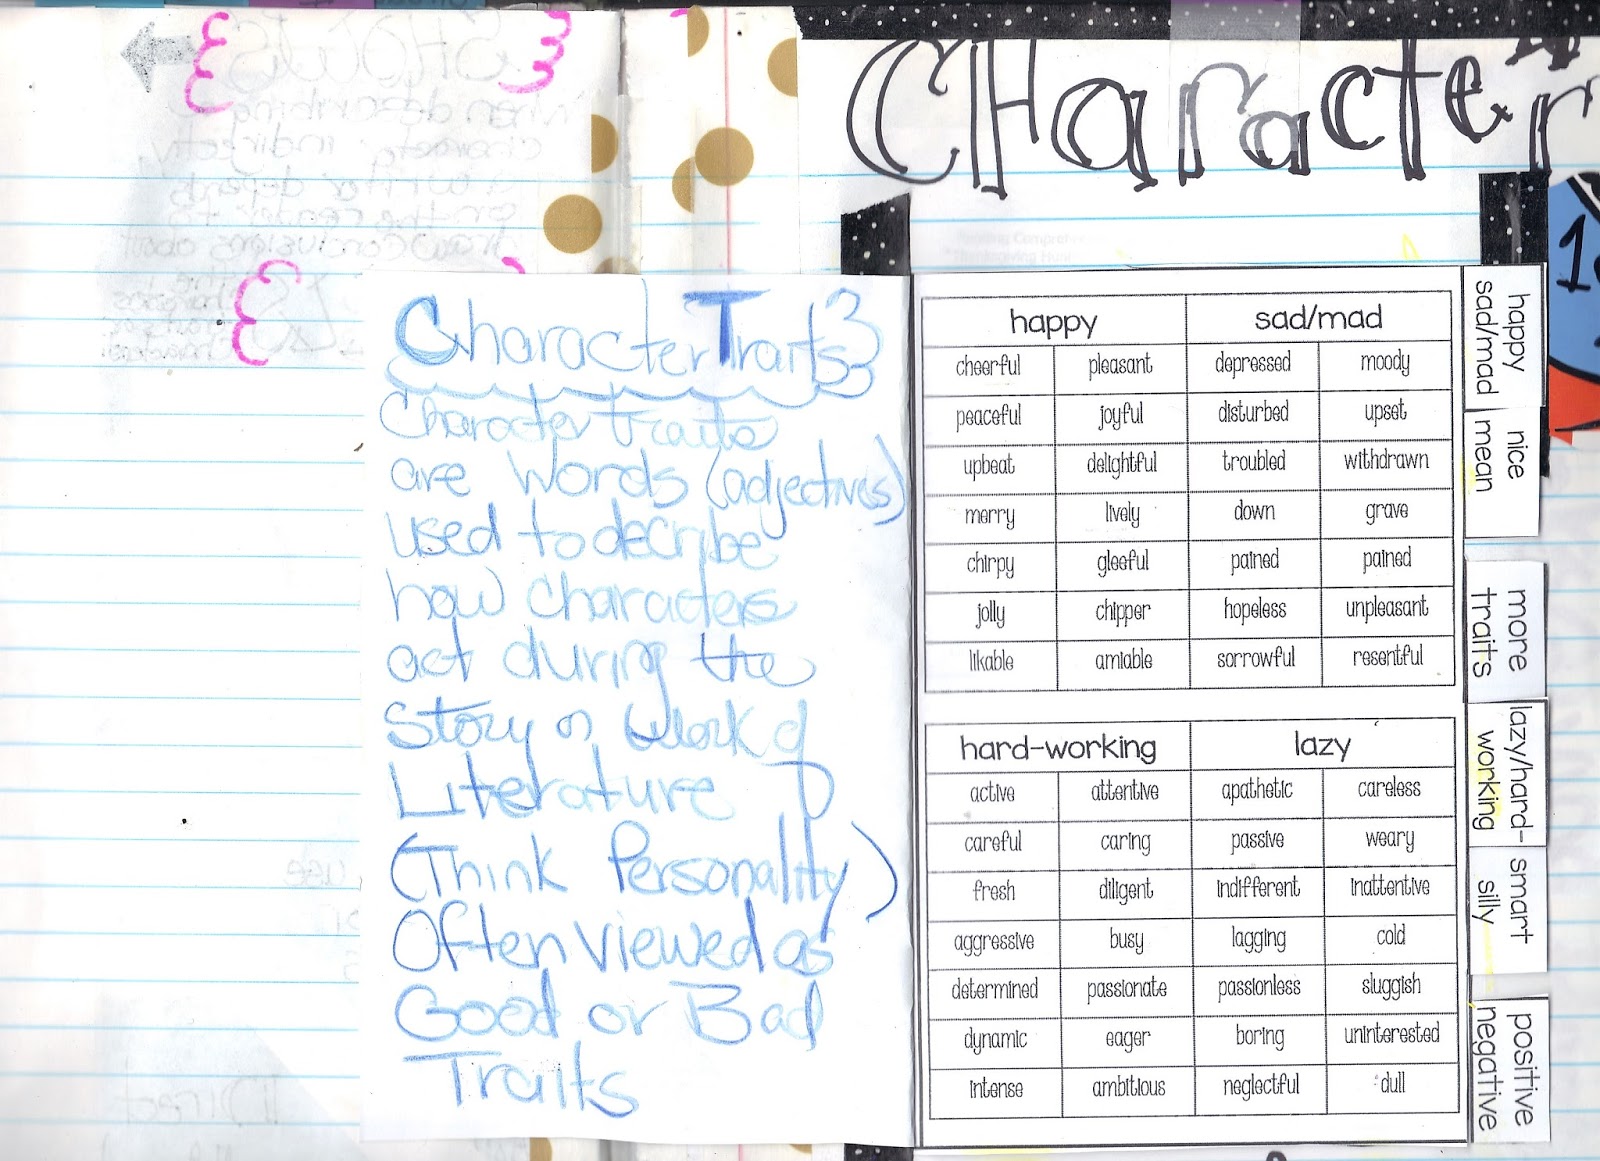 Character
Character Traits
Character traits
are words (adjectives)
used to decribe
how characters
act during the
Story or work of
Literature
(Think Personality)
Often viewed as
Good or Bad
Traits
happy sad/mad
cheerful pleasant depressed moody
peaceful joyful disturbed upset
upbeat delightful troubled withdrawn
merry lively down grave
chirpy gleeful pained pained
jolly chipper hopeless unpleasant
likable amiable sorrowful resentful
hard-working lazy
active attentive apathetic careless
careful caring passive weary
fresh diligent indifferent inattentive
aggressive busy lagging cold
determined passionate passionless sluggish
dynamic eager boring uninterested
intense ambitious neglectful dull
happy
sad/mad
nice
mean
more
traits
lazy/hard-
working
smart
silly
positive
negative